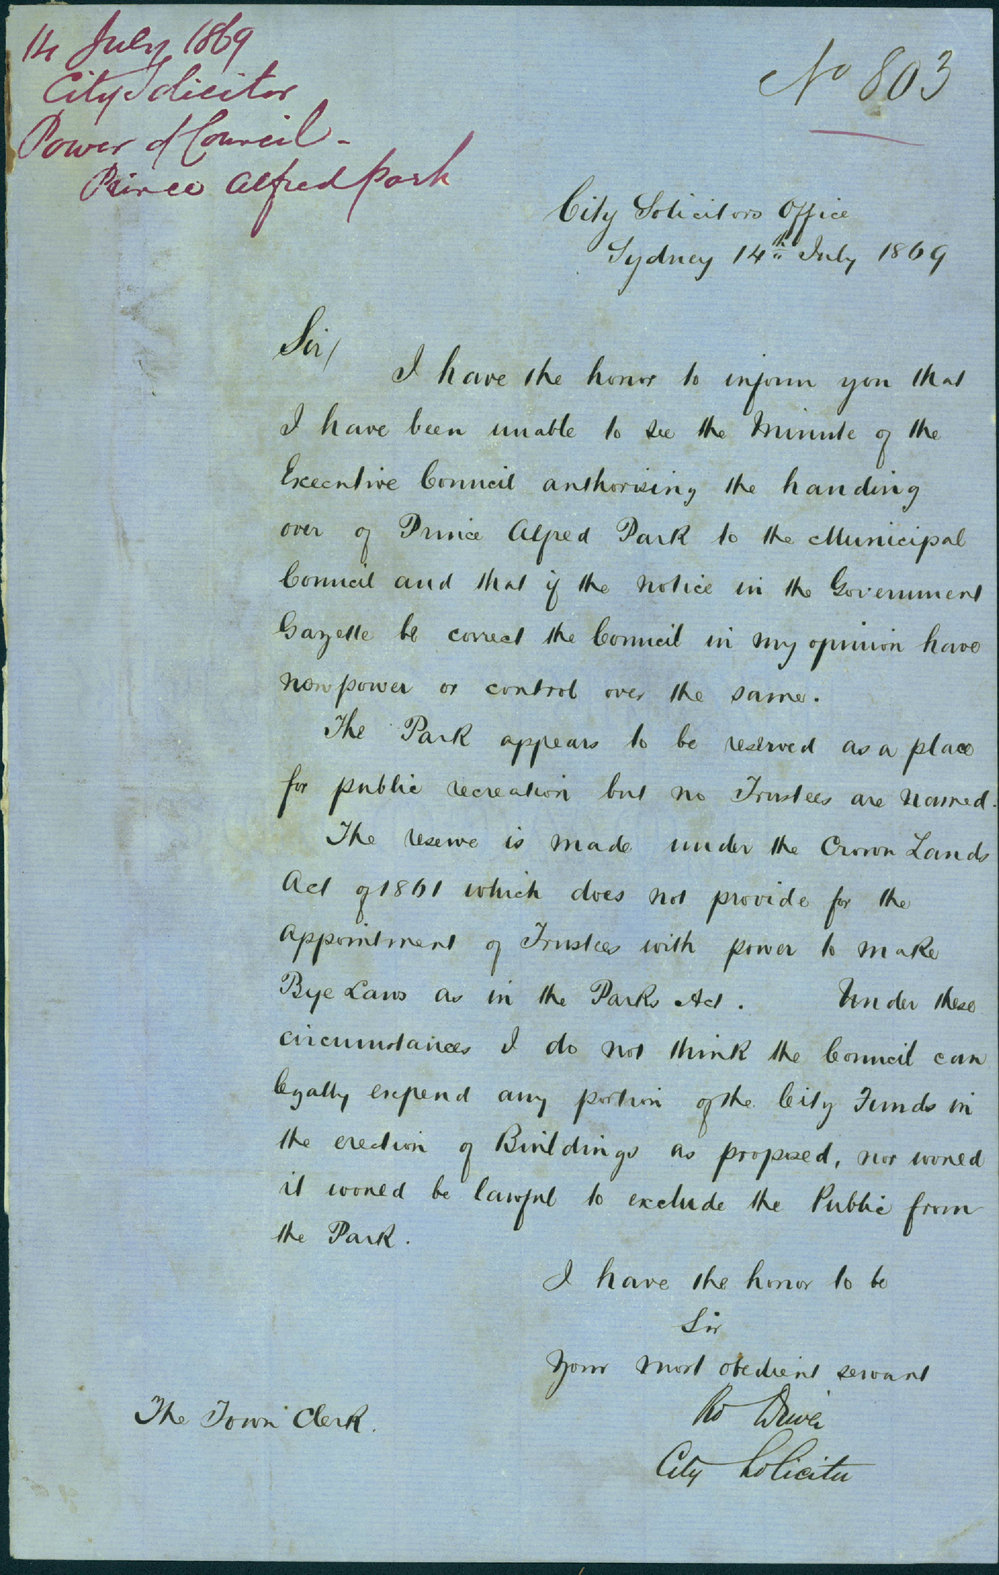 14 July 1869
City Solicitor
Power of Council -
Prince Alfred Park
No 803
City Solicitors Office
Sydney 14th July 1869
Sir/
I have the honor to inform you that
I have been unable to see the Minute of the
Executive Council authorising the handing
over of Prince Alfred Park to the Municipal
Council and that if the notice in the Government
Gazette be correct the Council in my opinion have
now power or control over the same.
The Park appears to be reserved as a place
for public recreation but no Trustees are named.
The reserve is made under the Crown Lands
Act of 1861 which does not provide for the
appointment of Trustees with power to make
Bye Laws as in the Parks Act. Under these
circumstances I do not think the Council can
legally expend any portion of the City Funds in
the erection of Buildings as proposed, nor would
it would be lawful to exclude the Public from
the Park.
I have the honor to be
Sir
Your most obedient servant
Ro Driver
City Solicitor
The Town Clerk.